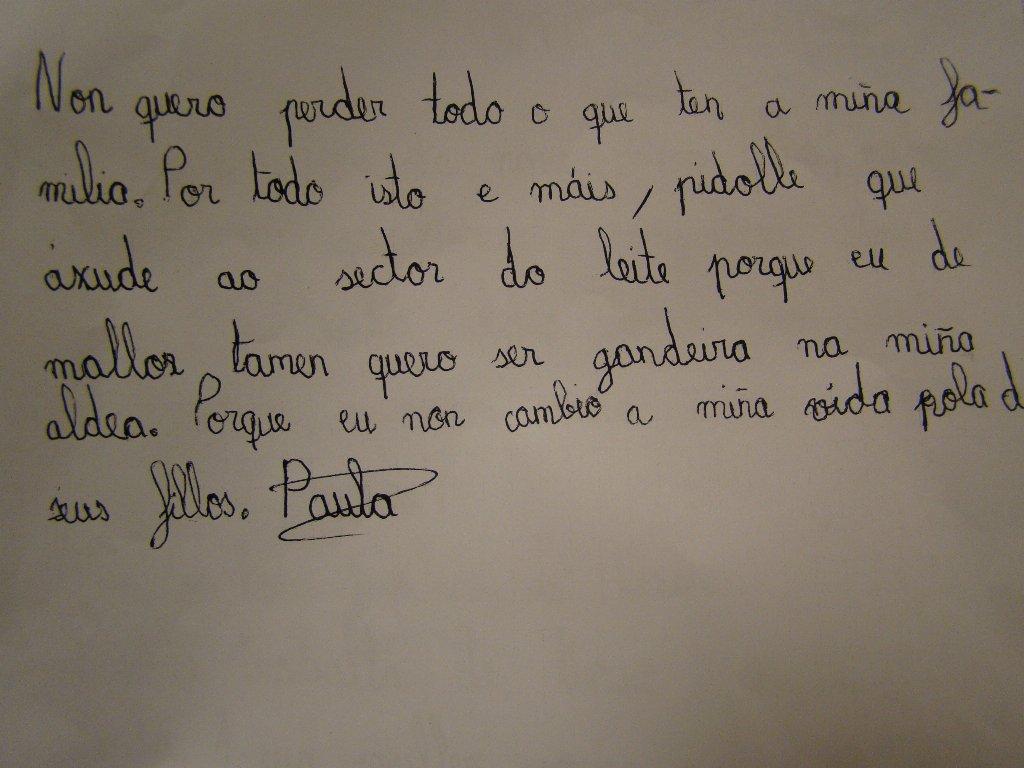 Non quero perder todo o que ten a miña fa-
milia. Por todo isto e máis, pídolle que
axude ao sector do leite porque eu de
mallor tamen quero ser gandeira na miña
aldea. Porque eu non cambio a miña vida pola d
seus fillos. Paula